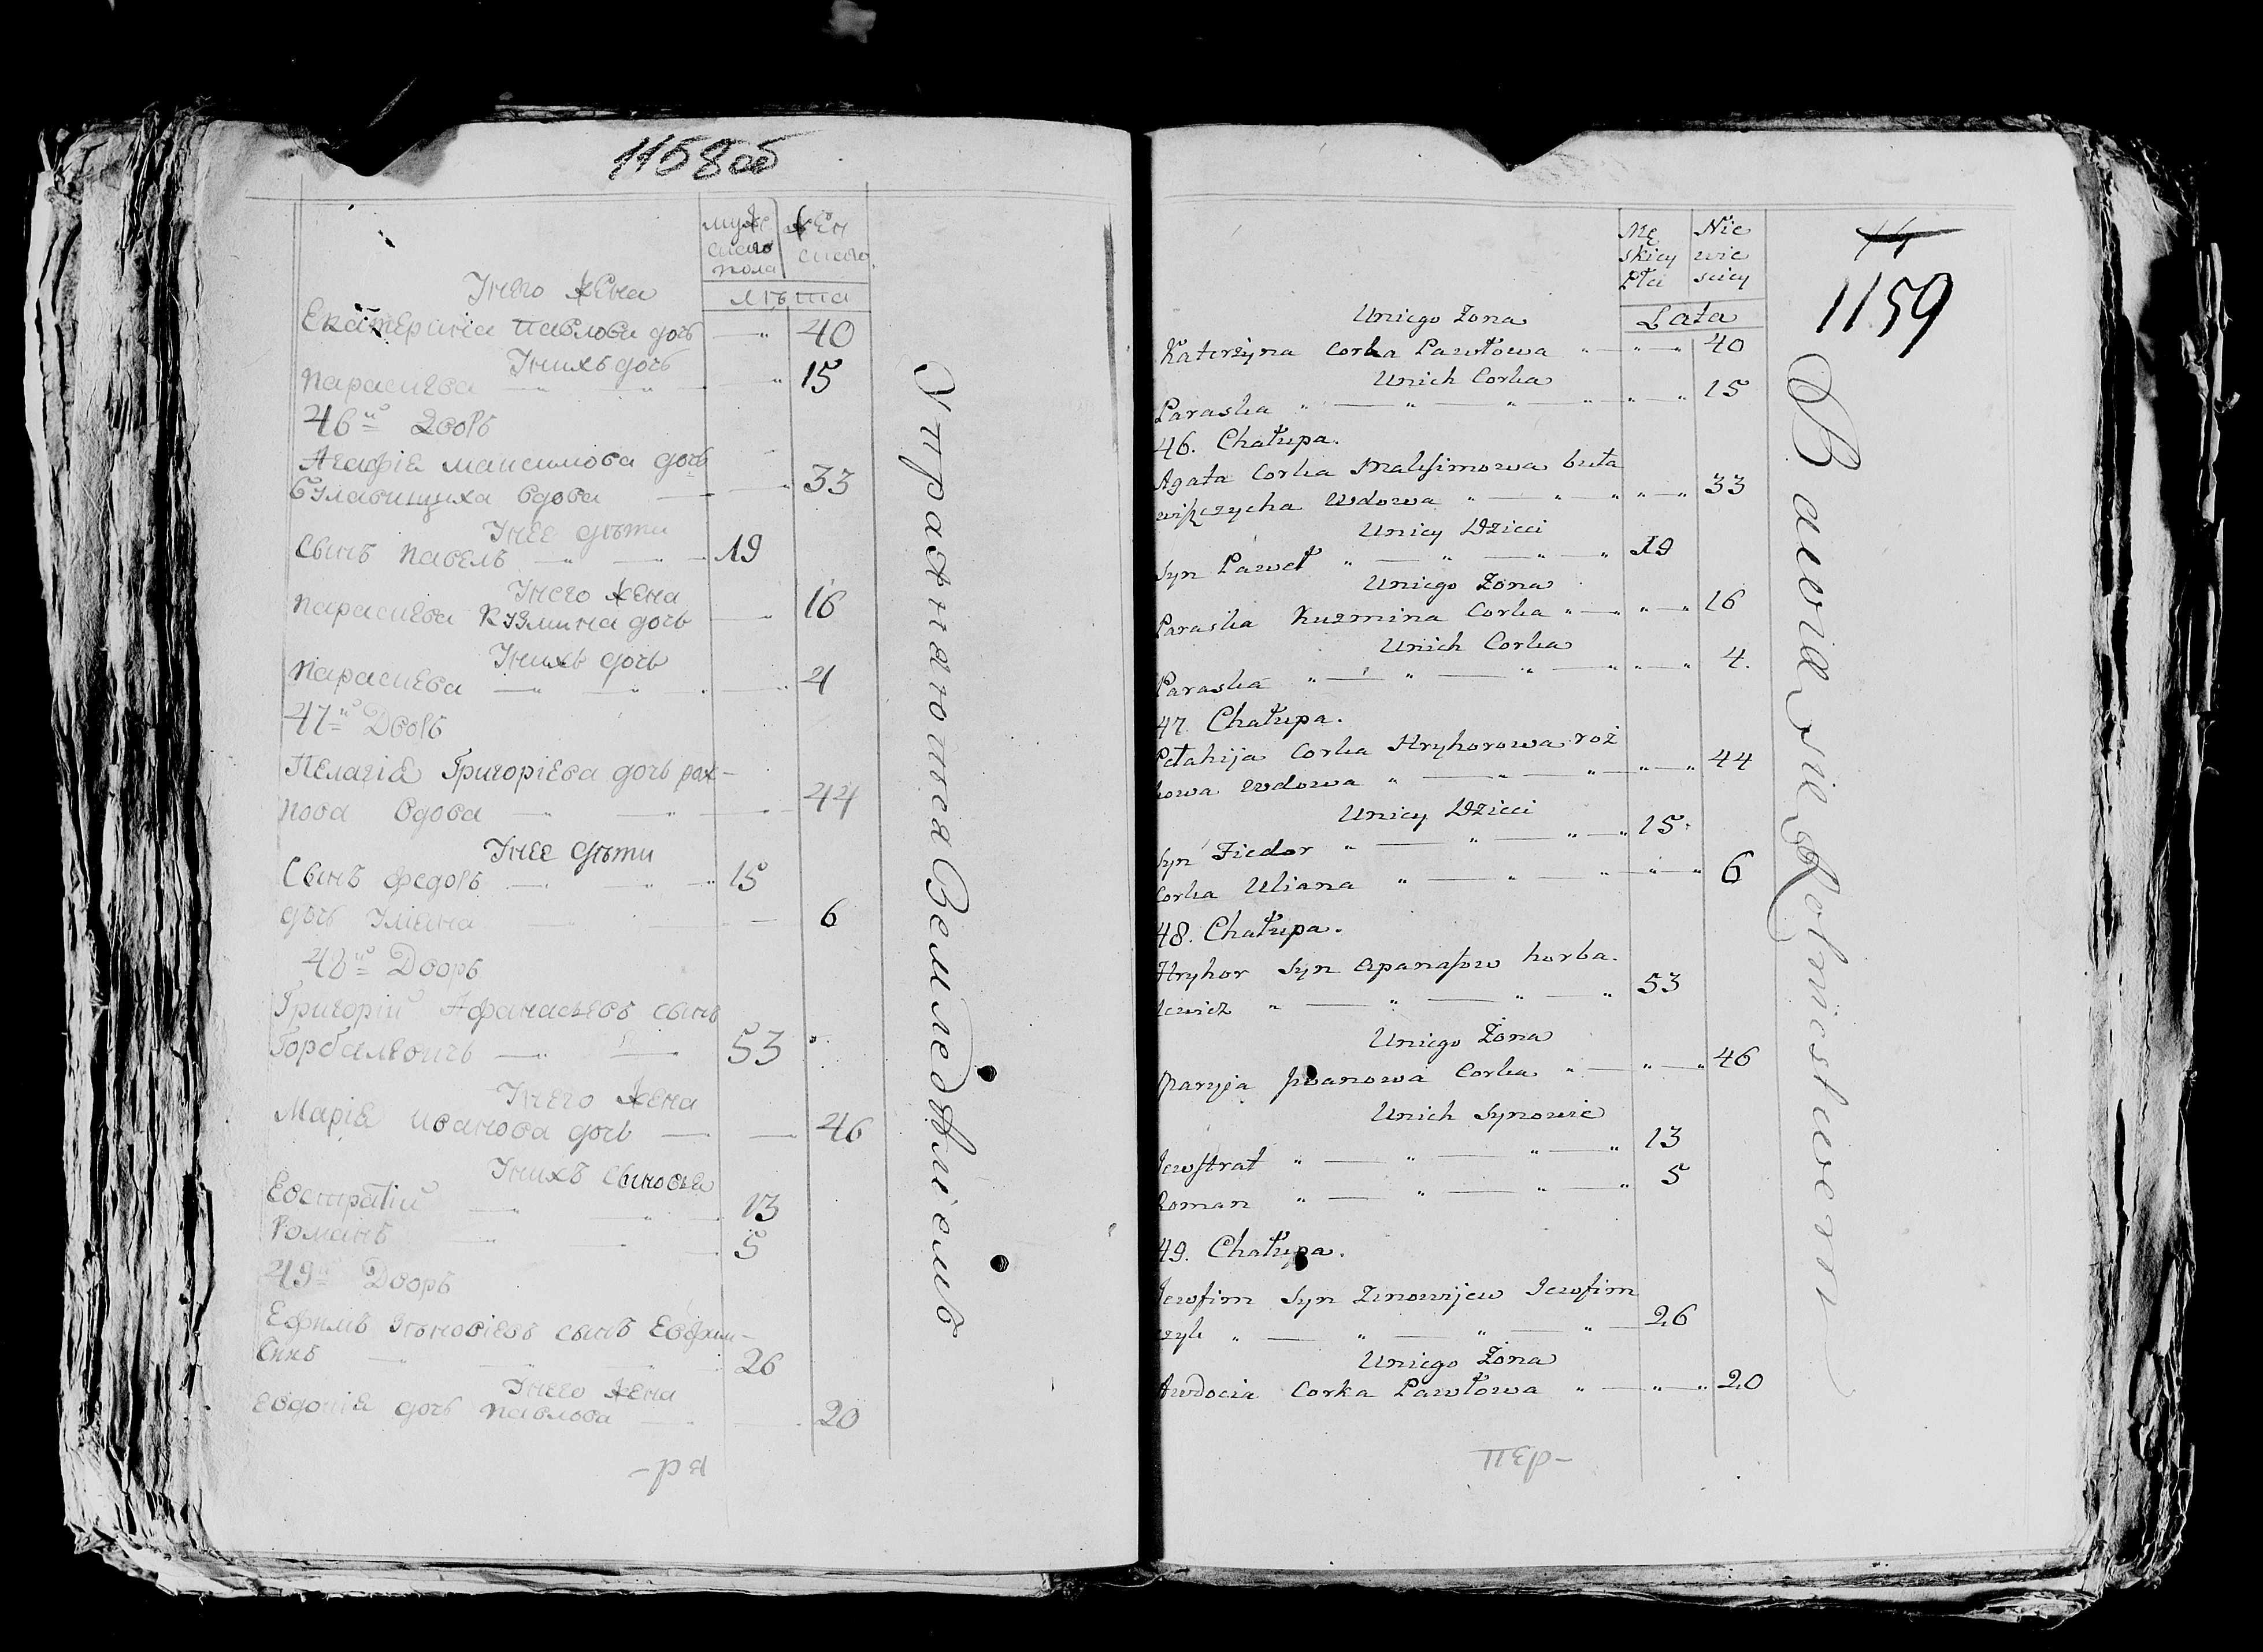 1158об
мужеского пола
женского
лѣта
У него жена
Екатерина павлова дочь 40
У нихъ дочь
параскева 15
46й Дворъ
Агафiя максимова дочь
бУлавищиха вдова 33
У нее дѣти
Сынъ павелъ 19
У него жена
параскева кУзмина дочь 16
У нихъ дочь
параскева 4
47й Дворъ
Пелагiя Григорiева дочь рож-
кова вдова 44
У нее дѣти
Сынъ федоръ 15
дочь Улiяна 6
48й Дворъ
Григорiй Афанасьевъ сынъ
Горбалевичь 53
У него жена
Марiя иванова дочь 46
У нихъ сыновья
Евстратiй 13
Романъ 5
49й Дворъ
Ефимъ Зѣновiевъ сынъ Евфим-
чикъ 26
У него жена
евдокiя дочь павлова 20
-ря
Упражняются Земледѣлiемъ
Mę
skiey
Płci
Nie
wie
sciey
Lata
14
1159
Uniego Żona
Katerzyna Corka Pawłowa 40
Unich Corka
Paraska 15
46. Chałupa.
Agata Corka Maksimowa buła
wiszczycha Wdowa 33
Uniey Dzieci
Syn Paweł 19
Uniego Żona
Paraska Kuzmina Corka 16
Unich Corka
Paraska 4.
47. Chałupa.
Pełahija Corka Hryhorowa roż
kowa wdowa 44
Uniey Dzieci
Syn Fiedor 15
Corka Uliana 6
48. Chałupa.
Hryhor Syn Apanasow horba.
lewicz 53
Uniego Żona
Maryja Jwanowa Corka 46
Unich Synowie
Jewstrat 13
Roman 5
49. Chałupa.
Jewfim Syn Zinowijew Jewfim
czyk 26
Uniego Żona
Awdocia Corka Pawłowa 20
пер-
Bawią się Rolnictwem